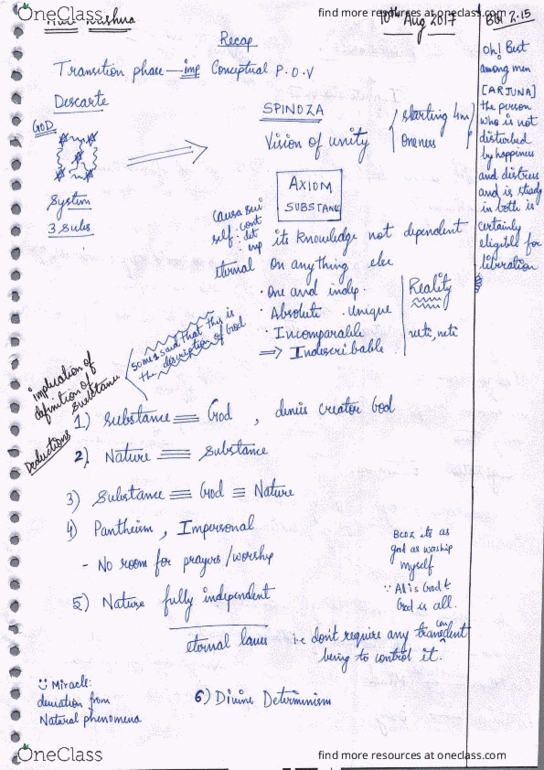 OneClass
find more resources at oneclass.com
10th Aug 2017
BG: 2.15
Recap
Transition phase — imp Conceptual P.O.V
Descarte
GOD
System
3 Subs
SPINOZA
Vision of unity
starting 4m
Oneness
AXIOM
SUBSTANCE
causa sui
self: cont
: det
: imp
eternal
its knowledge not dependent
on anything else
· One and indep.
· Absolute . Unique
· Incomparable
⇒ Indescribable
Reality
neti, neti
Oh! Best
among men
[ARJUNA]
the person
who is not
disturbed
by happiness
and distress
and is steady
in both is
certainly
eligible for
liberation
some said that this is
the description of God
implication of
definition of
substance
Deductions
1) Substance ≡ God , denies creator God
2) Nature ≡ Substance
3) Substance ≡ God ≡ Nature
4) Pantheism , Impersonal
- No room for prayers/worship
Bcoz its as
god as waship
myself
∵ All is God &
God is all.
5) Nature fully independent
eternal laws i.e don't require any transcendent
being to control it.
Miracle:
deviation from
Natural phenomena
6) Divine Determinism
OneClass
find more resources at oneclass.com